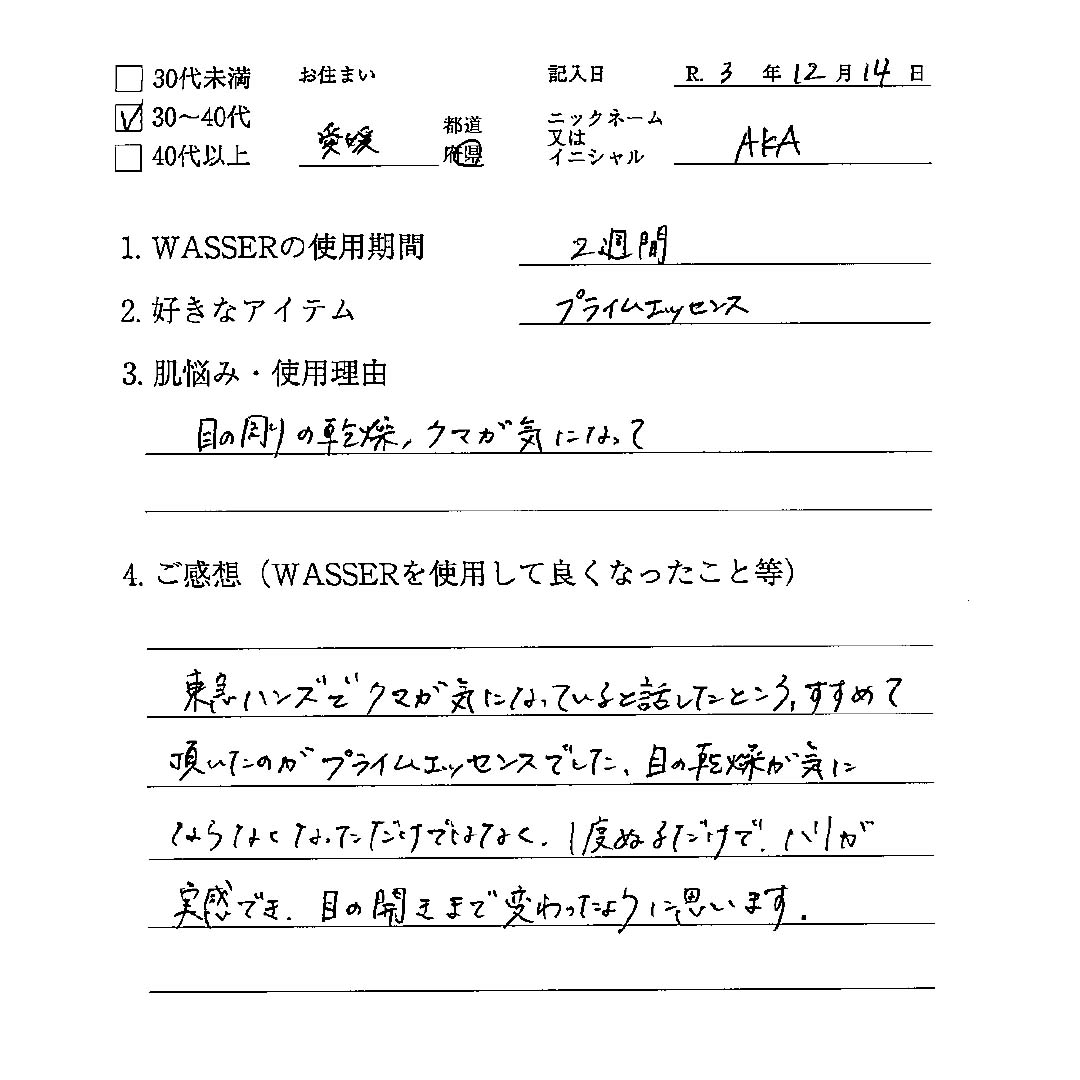 □ 30代未満 お住まい 記入日 R. 3 年 12 月 14 日
☑ 30〜40代 愛媛 都道府県 ニックネーム又はイニシャル AKA
□ 40代以上
1. WASSERの使用期間 2週間
2. 好きなアイテム プライムエッセンス
3. 肌悩み・使用理由
目の周りの乾燥、クマが気になって
4. ご感想（WASSERを使用して良くなったこと等）
東急ハンズでクマが気になっていると話したところ、すすめて
頂いたのがプライムエッセンスでした、目の乾燥が気に
ならなくなっただけではなく、1度ぬるだけで、ハリが
実感でき、目の開きまで変わったように思います。